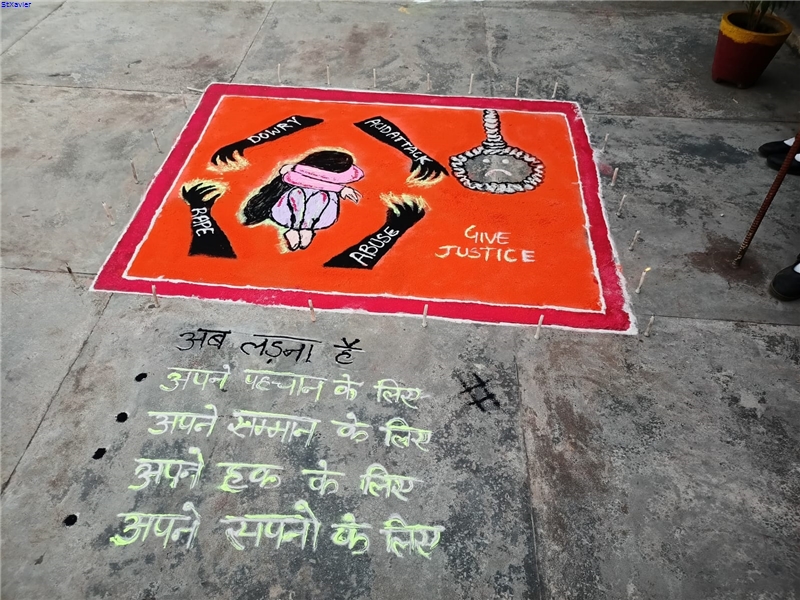 StXavier
DOWRY
ACIDATTACK
RAPE
ABUSE
GIVE
JUSTICE
अब लड़ना है
अपने पहचान के लिए
#
अपने सम्मान के लिए
अपने हक के लिए
अपने सपनो के लिए